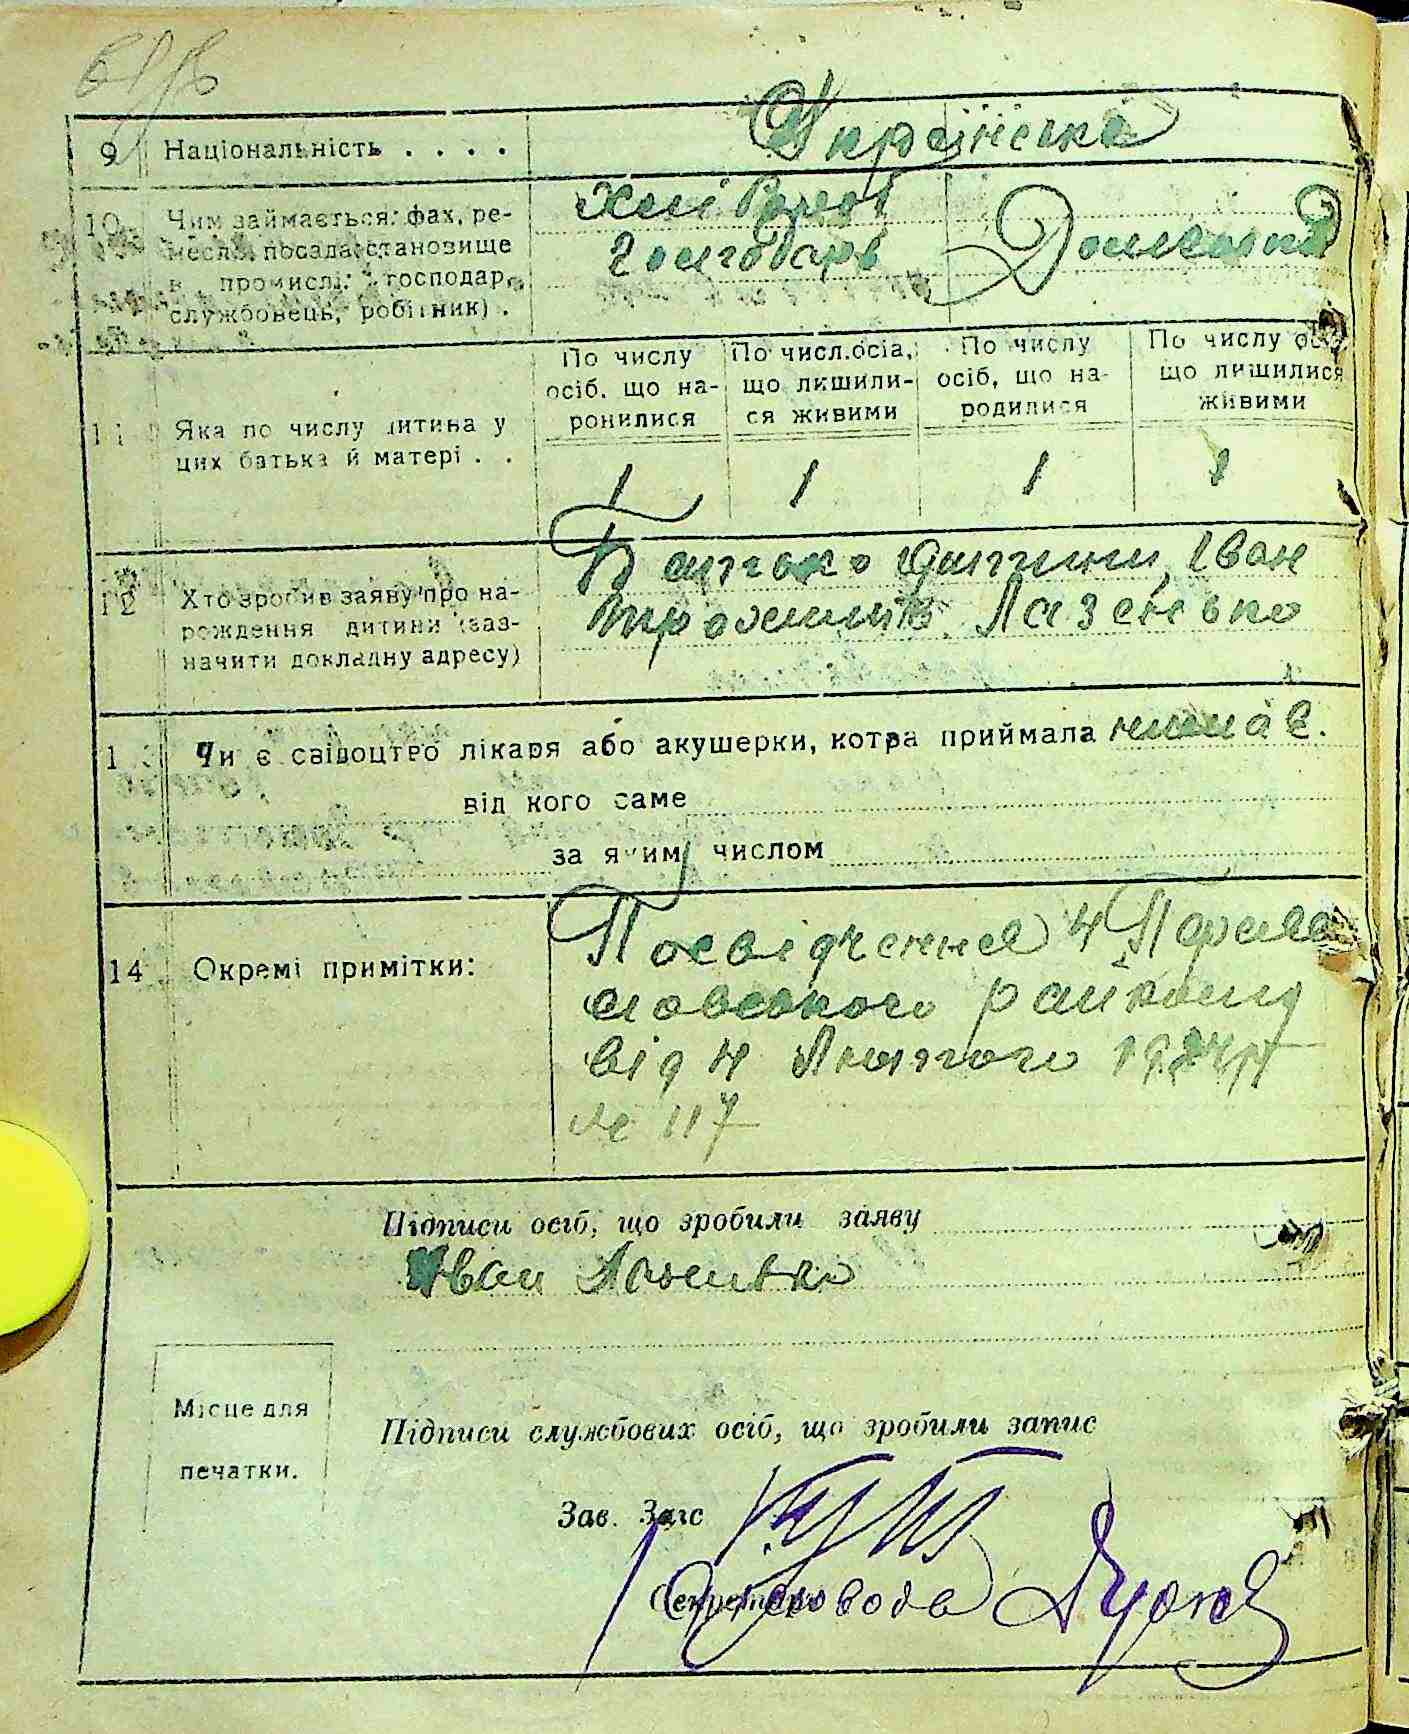 9 Національність . . . .
Українська
10 Чим займається: фах, ре-
месло, посада становище
в промислі: господар,
службовець, робітник) .
Хлібороб
Господарь
Домашня
11 Яка по числу дитина у
цих батька й матері . .
По числу
осіб, що на-
ронилися
По числ.осіа,
що лишили-
ся живими
По числу
осіб, що на-
родилися
По числу осіб
що лишилися
живими
1 1 1 1
12 Хто зробив заяву про на-
рождення дитини (заз-
начити докладну адресу)
Батько дитини Іван
Трохимів. Лазенько
13 Чи є свідоцтво лікаря або акушерки, котра приймала немає.
від кого саме
за яким числом
14 Окремі примітки:
Посвідчення
райкому
від 4 Лютого
№ 117
Підписи осіб, що зробили заяву
Іван
Місце для
печатки.
Підписи службових осіб, що зробили запис
Зав. Загс
Секретарь
Діловода